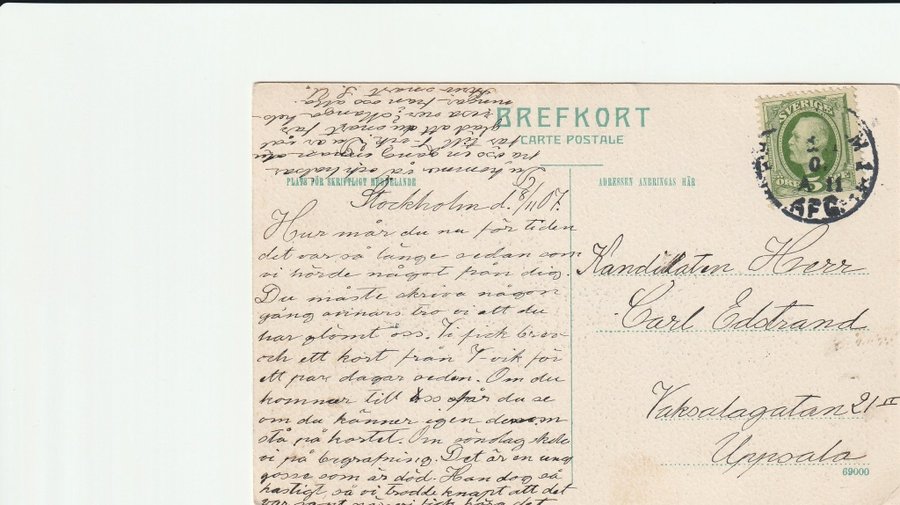 BREFKORT
CARTE POSTALE
PLATS FÖR SKRIFTLIGT MEDDELANDE
ADRESSEN ANBRINGAS HÄR
SVERIGE
ÖRE 5
Stockholm d. 8/11 07.
Hur mår du nu för tiden
det var så länge sedan som
vi hörde något från dig
Du måste skriva någon
gång annars tro vi att du
har glömt oss. Vi fick brev
och ett kort från York för
ett par dagar sedan. Om du
kommer till oss får du se
om du känner igen dem som
stå på kortet. Om söndag skola
vi på begrafning. Det är en ung
gosse som är död. Han dog så
hastigt så vi trodde knapt att det
var sant när vi fick höra det
Kandidaten Herr
Carl Edstrand
Vaksalagatan 21 II
Uppsala
69000